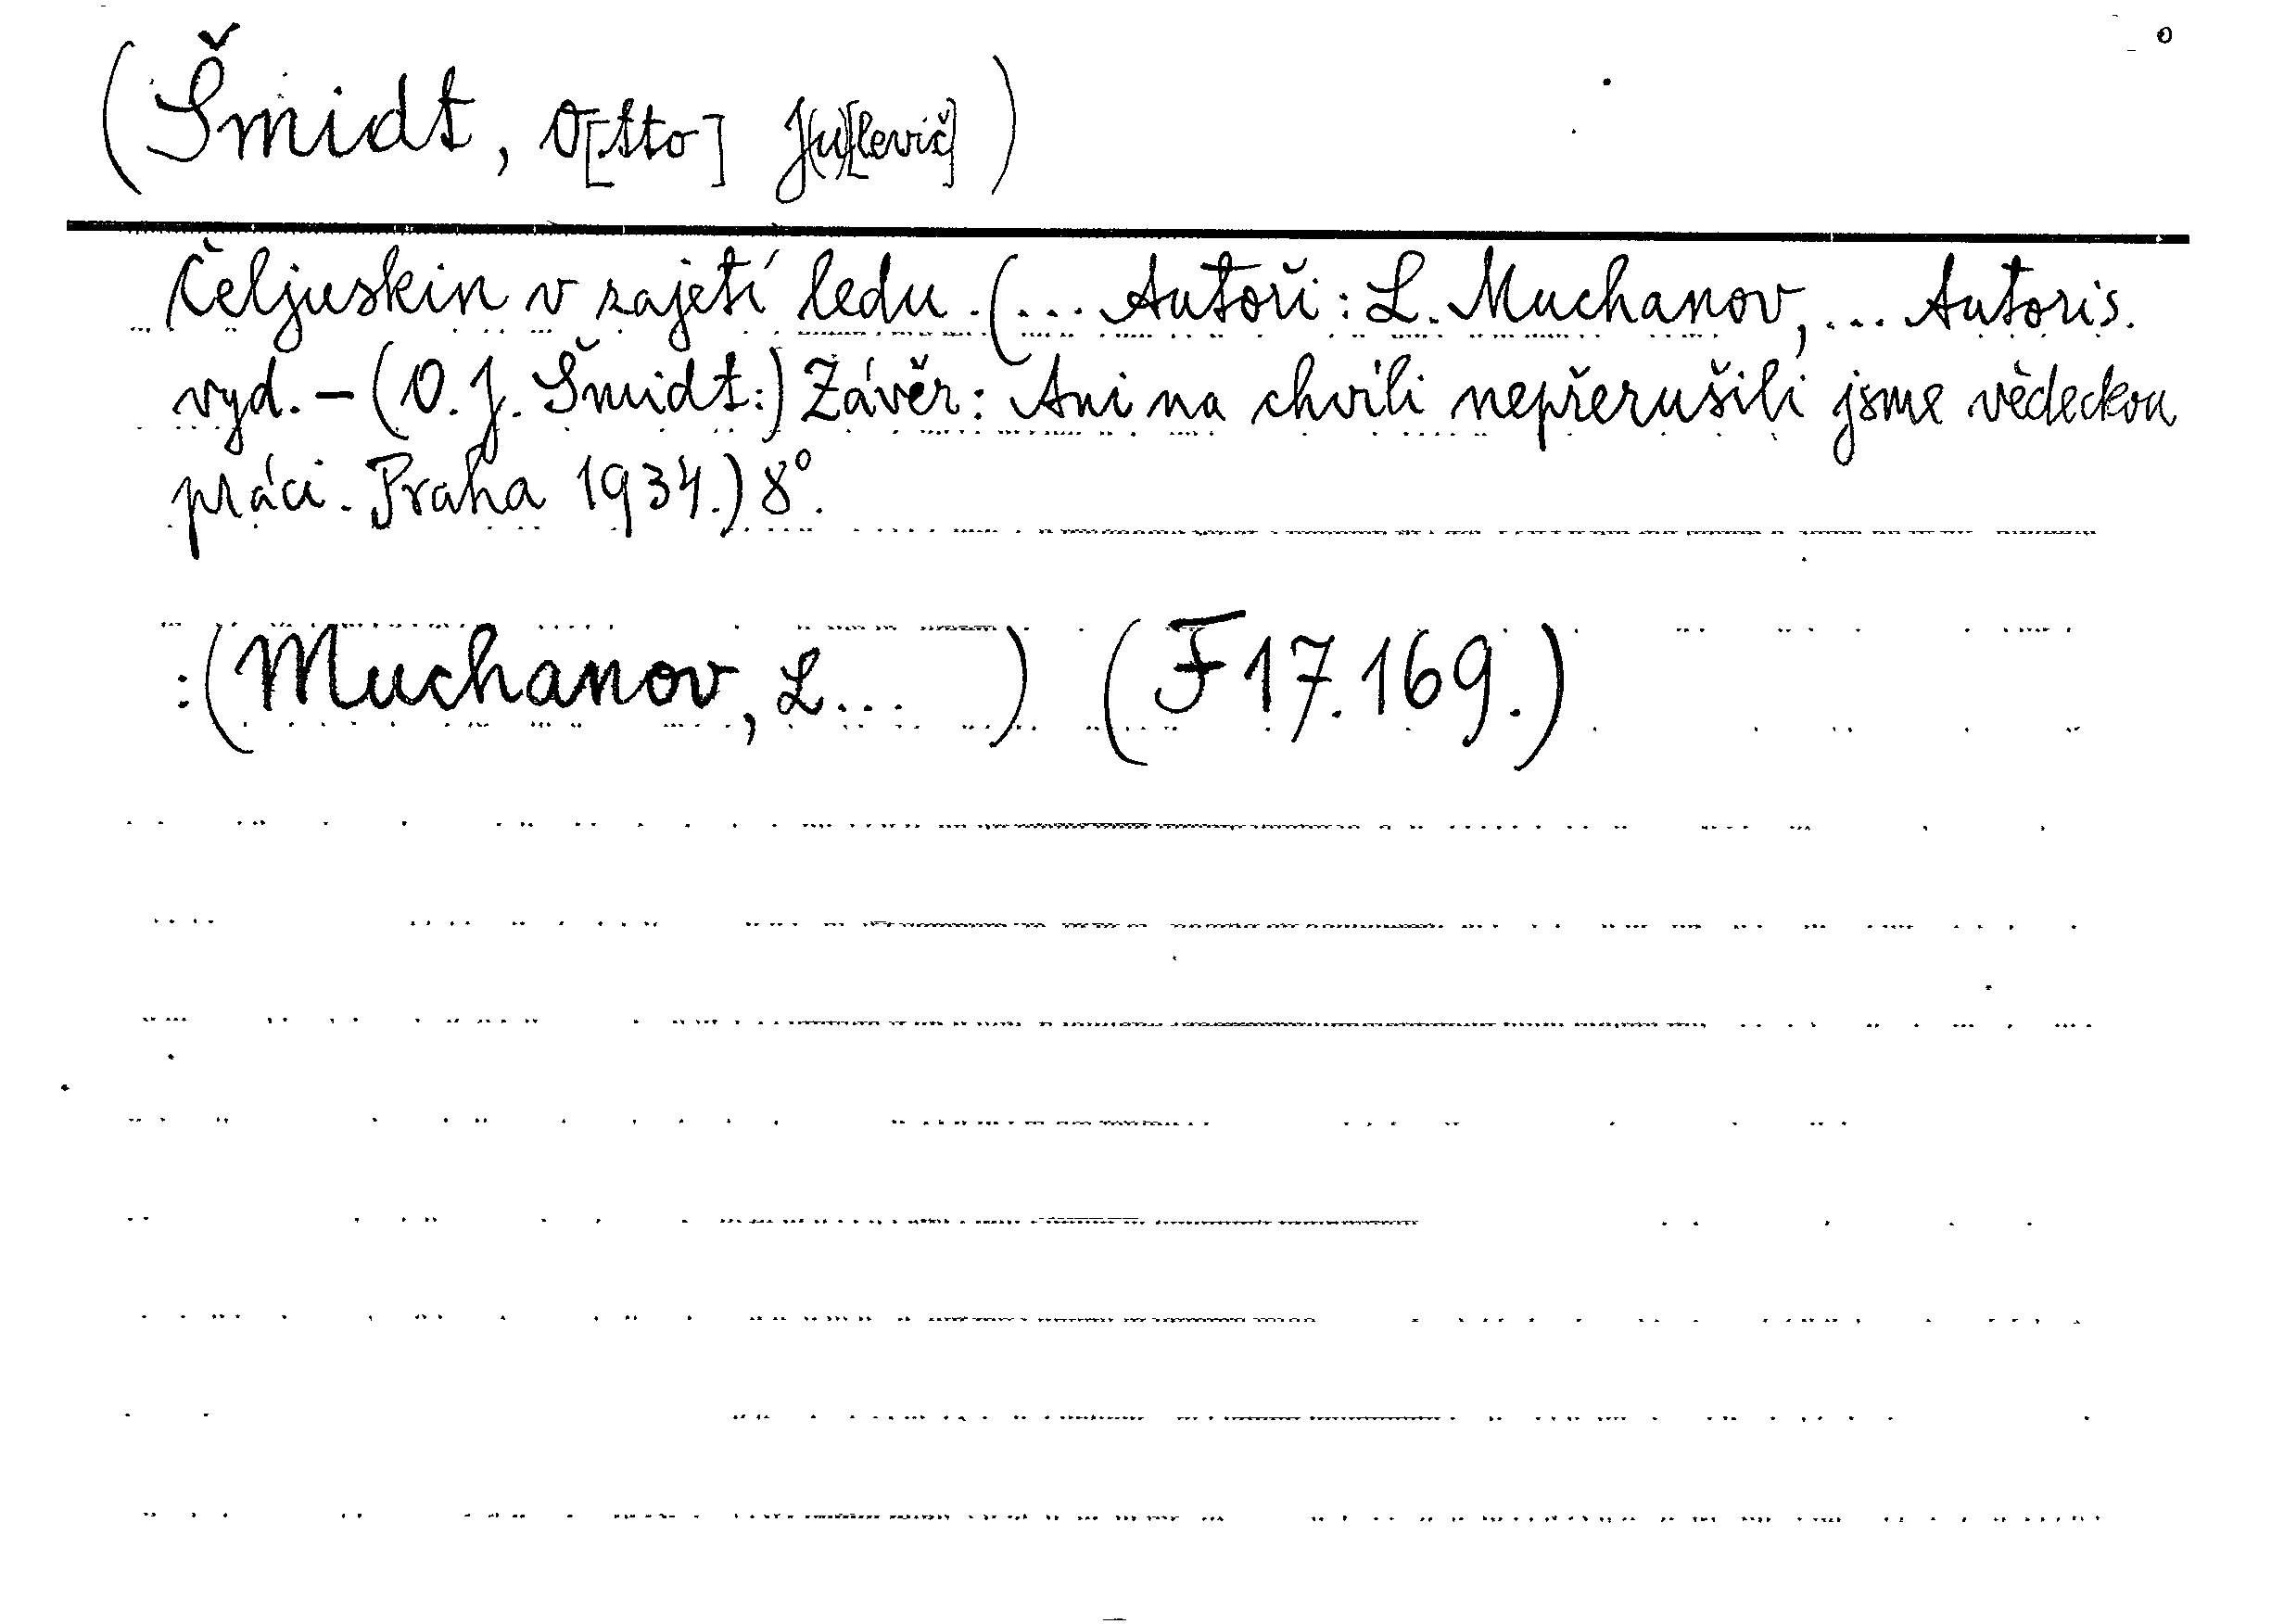 (Šmidt, O[tto] J(u)[levič])
Čeljuskin v zajetí ledu. (... Autoři: L. Muchanov, ... Autoris.
vyd. – (O. J. Šmidt:) Závěr: Ani na chvíli nepřerušili jsme vědeckou
práci. Praha 1934.) 8°.
:(Muchanov, L... ) (F 17.169.)